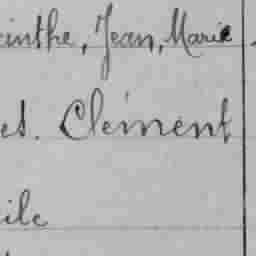 inthe, Jean, Marie
et. Clément
ile